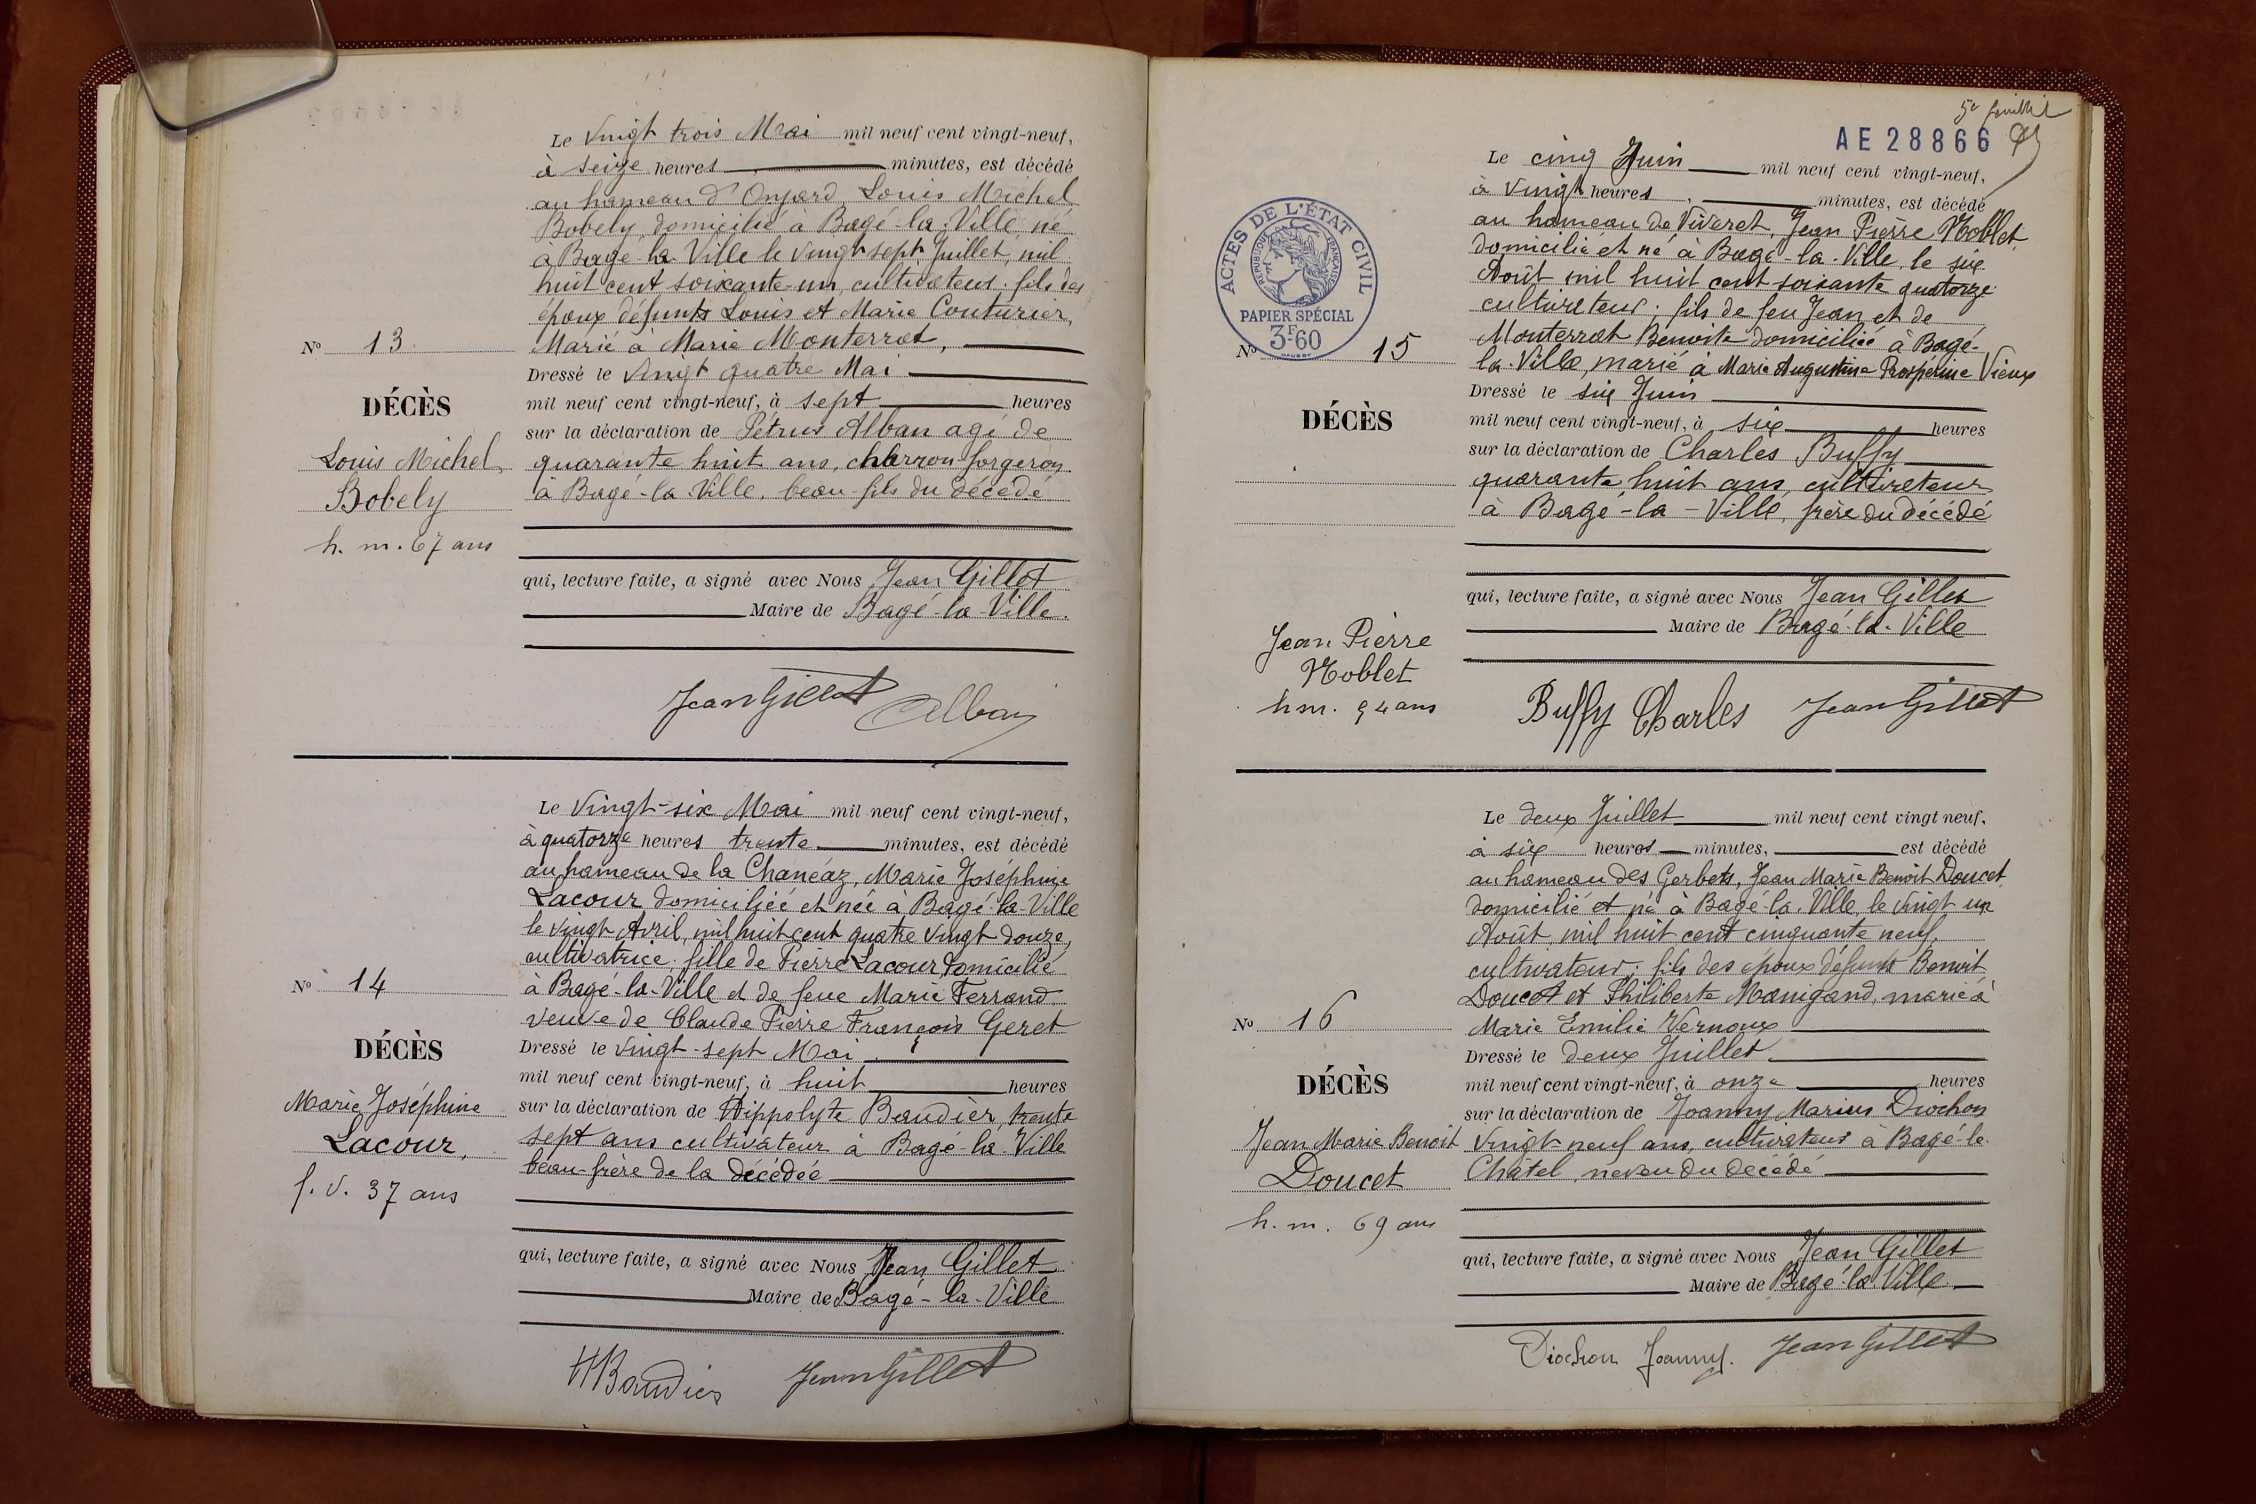 Le Vingt trois Mai mil neuf cent vingt-neuf,
à seize heures minutes, est décédé
au hameau d'Onjard Louis Michel
Bobely, domicilié à Bagé-la-Ville né
à Bagé-la-Ville le vingt sept Juillet, mil
huit cent soixante un, cultivateur. fils des
époux défunts Louis et Marie Couturier,
Marié à Marie Monterrat,
Dressé le Vingt quatre Mai
mil neuf cent vingt-neuf, à sept heures
sur la déclaration de Pétrus Alban agé de
quarante huit ans, charron-forgeron
à Bagé-la-Ville, beau-fils du décédé
qui, lecture faite, a signé avec Nous Jean Gillet
Maire de Bagé-la-Ville.
Nº 13
DÉCÈS
Louis Michel
Bobely
h. m. 67 ans
Jean Gillet Alban
Le Vingt-six Mai mil neuf cent vingt-neuf,
à quatorze heures trente minutes, est décédé
au hameau de la Chanéaz, Marie Joséphine
Lacour domiciliée et née à Bagé-la-Ville
le vingt Avril, mil huit cent quatre vingt douze,
cultivatrice. fille de Pierre Lacour domicilié
à Bagé-la-Ville et de feue Marie Ferrand
veuve de Claude Pierre François Geret
Dressé le vingt-sept Mai
mil neuf cent vingt-neuf, à huit heures
sur la déclaration de Hippolyte Baudier, trente
sept ans cultivateur à Bagé-la-Ville
beau-frère de la décédée
qui, lecture faite, a signé avec Nous Jean Gillet
Maire de Bagé-la-Ville
Nº 14
DÉCÈS
Marie Joséphine
Lacour,
f. v. 37 ans
HBaudier Jean Gillet
5e feuillet
AE 28866
ACTES DE L'ÉTAT CIVIL
RÉPUBLIQUE FRANÇAISE
PAPIER SPÉCIAL
3F60
Le cinq Juin mil neuf cent vingt-neuf,
à vingt heures, minutes, est décédé
au hameau de Viveret, Jean Pierre Noblet
domicilié et né à Bagé-la-Ville, le six
Août mil huit cent soixante quatorze
cultivateur; fils de feu Jean et de
Monterrat Benoite domiciliée à Bagé-
la-Ville, marié à Marie Augustine Prospérine Vieux
Dressé le six Juin
mil neuf cent vingt-neuf, à six heures
sur la déclaration de Charles Buffy
quarante huit ans, cultivateur
à Bagé-la-Ville, frère du décédé
qui, lecture faite, a signé avec Nous Jean Gillet
Maire de Bagé-la-Ville
Nº 15
DÉCÈS
Jean Pierre
Noblet
h.m. 54 ans
Buffy Charles Jean Gillet
Le deux Juillet mil neuf cent vingt neuf,
à six heures minutes, est décédé
au hameau des Gerbets, Jean Marie Benoit Doucet
domicilié et né à Bagé-la-Ville, le vingt un
Août, mil huit cent cinquante neuf,
cultivateur; fils des époux défunts Benoit
Doucet et Philiberte Manigand, marié à
Marie Emilie Vernoux
Dressé le deux Juillet
mil neuf cent vingt-neuf, à onze heures
sur la déclaration de Joanny Marius Diochon
vingt-neuf ans, cultivateur à Bagé-le-
Châtel, neveu du décédé
qui, lecture faite, a signé avec Nous Jean Gillet
Maire de Bagé-la-Ville
Nº 16
DÉCÈS
Jean Marie Benoit
Doucet
h. m. 69 ans
Diochon Joanny. Jean Gillet